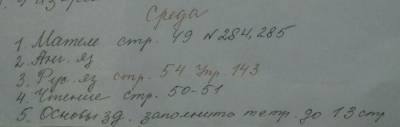 Среда
1. Матем стр. 49 № 284, 285
2. Анг. яз
3. Рус. яз стр. 54 Упр. 143
4. Чтение стр. 50-51
5. Основы зд. заполнить тетр. до 13 стр